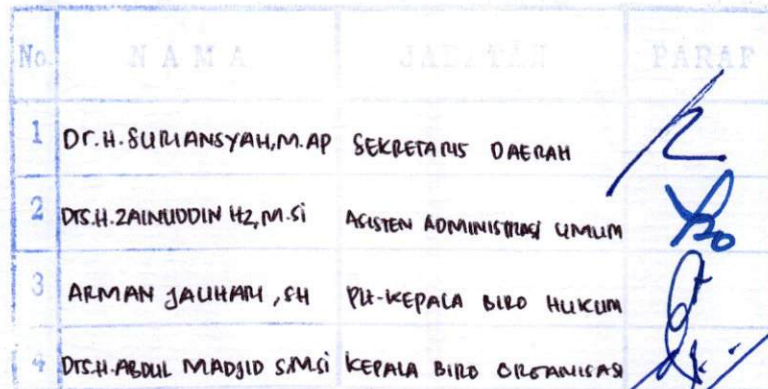 No. NAMA JABATAN PARAF
1 Dr.H.SURIANSYAH,M.AP SEKRETARIS DAERAH
2 DTS.H.ZAINUDDIN HZ,M.Si ASISTEN ADMINISTRASI UMUM
3 ARMAN JAUHARI,SH Plt-KEPALA BIRO HUKUM
4 DTS.H.ABDUL MADJID S,M.Si KEPALA BIRO ORGANISASI